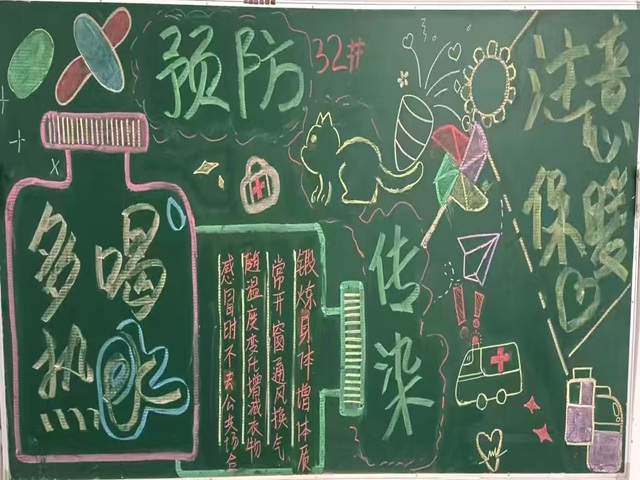 预防
32#
传染
注意
保暖
多喝
热水
锻炼身体增体质
常开窗通风换气
随温度变化增减衣物
感冒时不去公共场合